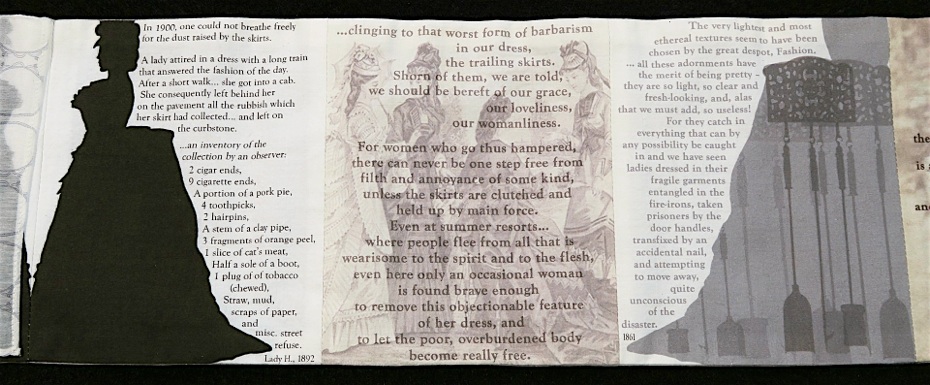 In 1900, one could not breathe freely
for the dust raised by the skirts.
A lady attired in a dress with a long train
that answered the fashion of the day.
After a short walk... she got into a cab.
She consequently left behind her
on the pavement all the rubbish which
her skirt had collected... and left on
the curbstone.
...an inventory of the
collection by an observer:
2 cigar ends,
9 cigarette ends,
A portion of a pork pie,
4 toothpicks,
2 hairpins,
A stem of a clay pipe,
3 fragments of orange peel,
1 slice of cat's meat,
Half a sole of a boot,
1 plug of of tobacco
(chewed),
Straw, mud,
scraps of paper,
and
misc. street
refuse.
Lady H., 1892
...clinging to that worst form of barbarism
in our dress,
the trailing skirts.
Shorn of them, we are told,
we should be bereft of our grace,
our loveliness,
our womanliness.
For women who go thus hampered,
there can never be one step free from
filth and annoyance of some kind,
unless the skirts are clutched and
held up by main force.
Even at summer resorts...
where people flee from all that is
wearisome to the spirit and to the flesh,
even here only an occasional woman
is found brave enough
to remove this objectionable feature
of her dress, and
to let the poor, overburdened body
become really free.
The very lightest and most
ethereal textures seem to have been
chosen by the great despot, Fashion.
... all these adornments have
the merit of being pretty -
they are so light, so clear and
fresh-looking, and, alas
that we must add, so useless!
For they catch in
everything that can by
any possibility be caught
in and we have seen
ladies dressed in their
fragile garments
entangled in the
fire-irons, taken
prisoners by the
door handles,
transfixed by an
accidental nail,
and attempting
to move away,
quite
unconscious
of the
disaster.
1861
the
is
and